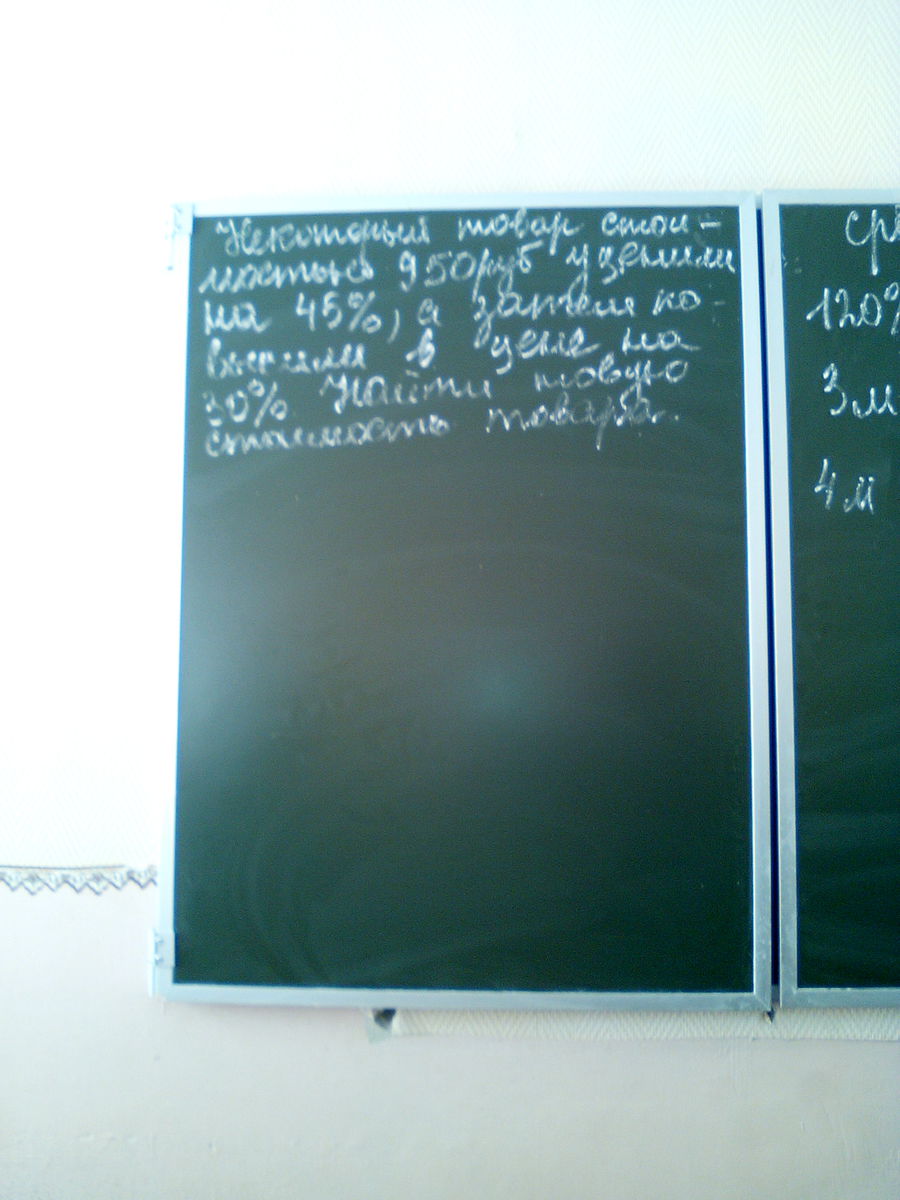 Некоторый товар стои-
мостью 950руб уценили
на 45%, а затем по-
высили в цене на
30%. Найти новую
стоимость товара.
ср
120%
3м
4м